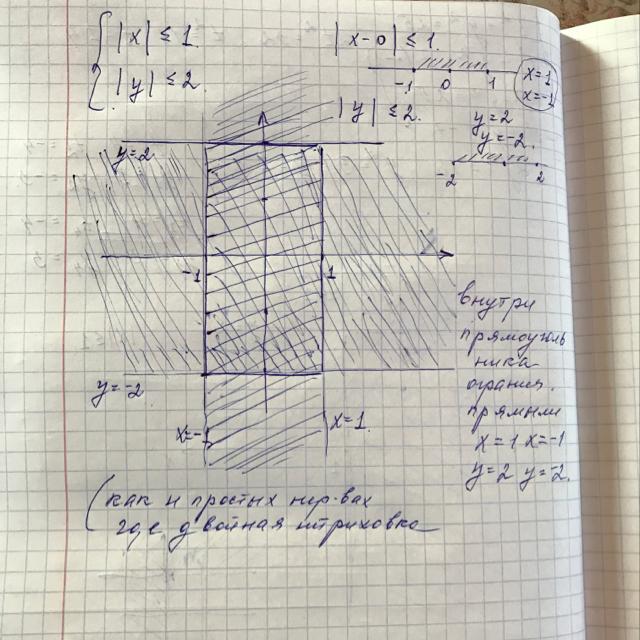 |x| ≤ 1.
|x-0| ≤ 1.
-1 0 1
x=1
x=-1
|y| ≤ 2.
|y| ≤ 2.
y=2
y=-2.
-2 2
y=2
-1 1
внутри
прямоуголь
ника
огранич.
прямыми
x=1 x=-1
y=2 y=-2.
y=-2
x=-1 x=1.
(как и простых нер-вах
где двойная штриховка